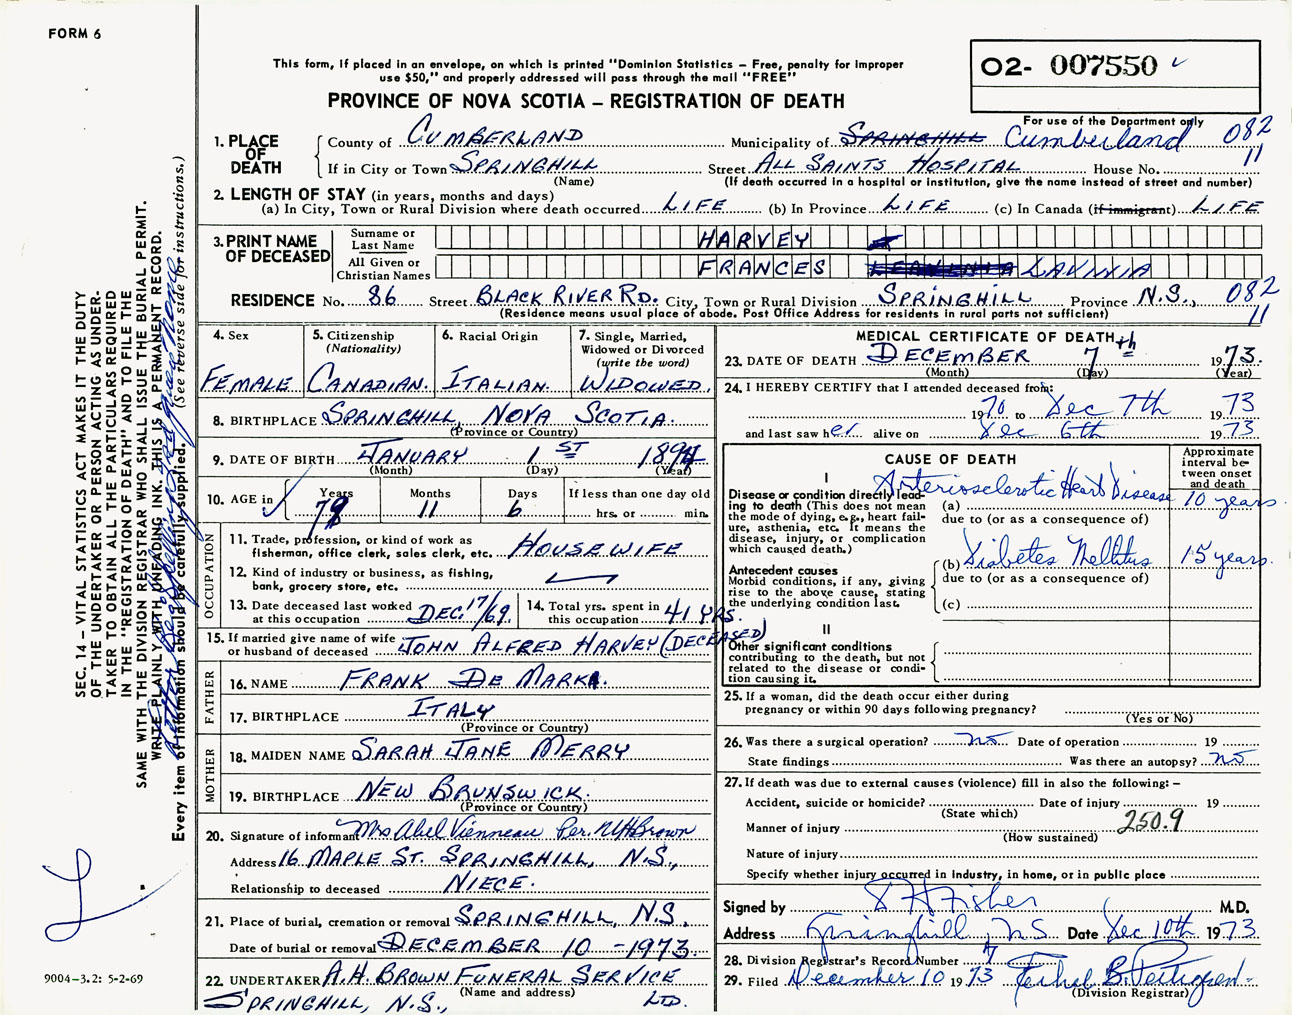 FORM 6
This form, if placed in an envelope, on which is printed "Dominion Statistics – Free, penalty for improper
use $50," and properly addressed will pass through the mail "FREE"
PROVINCE OF NOVA SCOTIA – REGISTRATION OF DEATH
02- 007550
For use of the Department only
1. PLACE OF DEATH
County of CUMBERLAND Municipality of SPRINGHILL Cumberland 082
If in City or Town SPRINGHILL Street ALL SAINTS HOSPITAL House No. 11
(Name) (If death occurred in a hospital or institution, give the name instead of street and number)
2. LENGTH OF STAY (in years, months and days)
(a) In City, Town or Rural Division where death occurred LIFE (b) In Province LIFE (c) In Canada (if immigrant) LIFE
3. PRINT NAME OF DECEASED
Surname or Last Name HARVEY
All Given or Christian Names FRANCES LAVINIA
RESIDENCE No. 86 Street BLACK RIVER RD. City, Town or Rural Division SPRINGHILL Province N.S., 082
(Residence means usual place of abode. Post Office Address for residents in rural parts not sufficient) 11
4. Sex FEMALE
5. Citizenship (Nationality) CANADIAN.
6. Racial Origin ITALIAN.
7. Single, Married, Widowed or Divorced (write the word) WIDOWED.
8. BIRTHPLACE SPRINGHILL, NOVA SCOTIA.
(Province or Country)
9. DATE OF BIRTH JANUARY 1ST 1894
(Month) (Day) (Year)
10. AGE in Years Months Days If less than one day old
79 11 6 hrs. or min.
OCCUPATION
11. Trade, profession, or kind of work as
fisherman, office clerk, sales clerk, etc. HOUSEWIFE
12. Kind of industry or business, as fishing,
bank, grocery store, etc.
13. Date deceased last worked at this occupation DEC. 17/69
14. Total yrs. spent in this occupation 41 YRS.
15. If married give name of wife
or husband of deceased JOHN ALFRED HARVEY (DECEASED)
FATHER
16. NAME FRANK DE MARK
17. BIRTHPLACE ITALY
(Province or Country)
MOTHER
18. MAIDEN NAME SARAH JANE MERRY
19. BIRTHPLACE NEW BRUNSWICK.
(Province or Country)
20. Signature of informant Mrs Abel Vienneau Per. Brown
Address 16 MAPLE ST. SPRINGHILL, N.S.,
Relationship to deceased NIECE.
21. Place of burial, cremation or removal SPRINGHILL, N.S.
Date of burial or removal DECEMBER 10 - 1973
22. UNDERTAKER A.H. BROWN FUNERAL SERVICE
(Name and address)
SPRINGHILL, N.S., LTD.
MEDICAL CERTIFICATE OF DEATH
23. DATE OF DEATH DECEMBER 7th 1973.
(Month) (Day) (Year)
24. I HEREBY CERTIFY that I attended deceased from:
1970 to Dec 7th 1973
and last saw her alive on Dec 6th 1973
CAUSE OF DEATH
Approximate interval between onset and death
I
Disease or condition directly leading to death (This does not mean the mode of dying, e.g., heart failure, asthenia, etc. It means the disease, injury, or complication which caused death.)
(a) Arteriosclerotic Heart Disease 10 years
due to (or as a consequence of)
(b) Diabetes Mellitus 15 years.
Antecedent causes
Morbid conditions, if any, giving rise to the above cause, stating the underlying condition last.
due to (or as a consequence of)
(c)
II
Other significant conditions
contributing to the death, but not related to the disease or condition causing it.
25. If a woman, did the death occur either during
pregnancy or within 90 days following pregnancy?
(Yes or No)
26. Was there a surgical operation? no Date of operation 19
State findings Was there an autopsy? no
27. If death was due to external causes (violence) fill in also the following: –
Accident, suicide or homicide? Date of injury 19
(State which)
Manner of injury 250.9
(How sustained)
Nature of injury
Specify whether injury occurred in industry, in home, or in public place
Signed by Fisher M.D.
Address Springhill, NS Date Dec 10th 1973
28. Division Registrar's Record Number
29. Filed December 10 1973 Ethel B.
(Division Registrar)
SEC. 14 – VITAL STATISTICS ACT MAKES IT THE DUTY
OF THE UNDERTAKER OR PERSON ACTING AS UNDER-
TAKER TO OBTAIN ALL THE PARTICULARS REQUIRED
IN THE "REGISTRATION OF DEATH" AND TO FILE THE
SAME WITH THE DIVISION REGISTRAR WHO SHALL ISSUE THE BURIAL PERMIT.
WRITE PLAINLY WITH UNFADING INK. THIS IS A PERMANENT RECORD.
Every item of information should be carefully supplied. (See reverse side for instructions.)
9004-3.2: 5-2-69